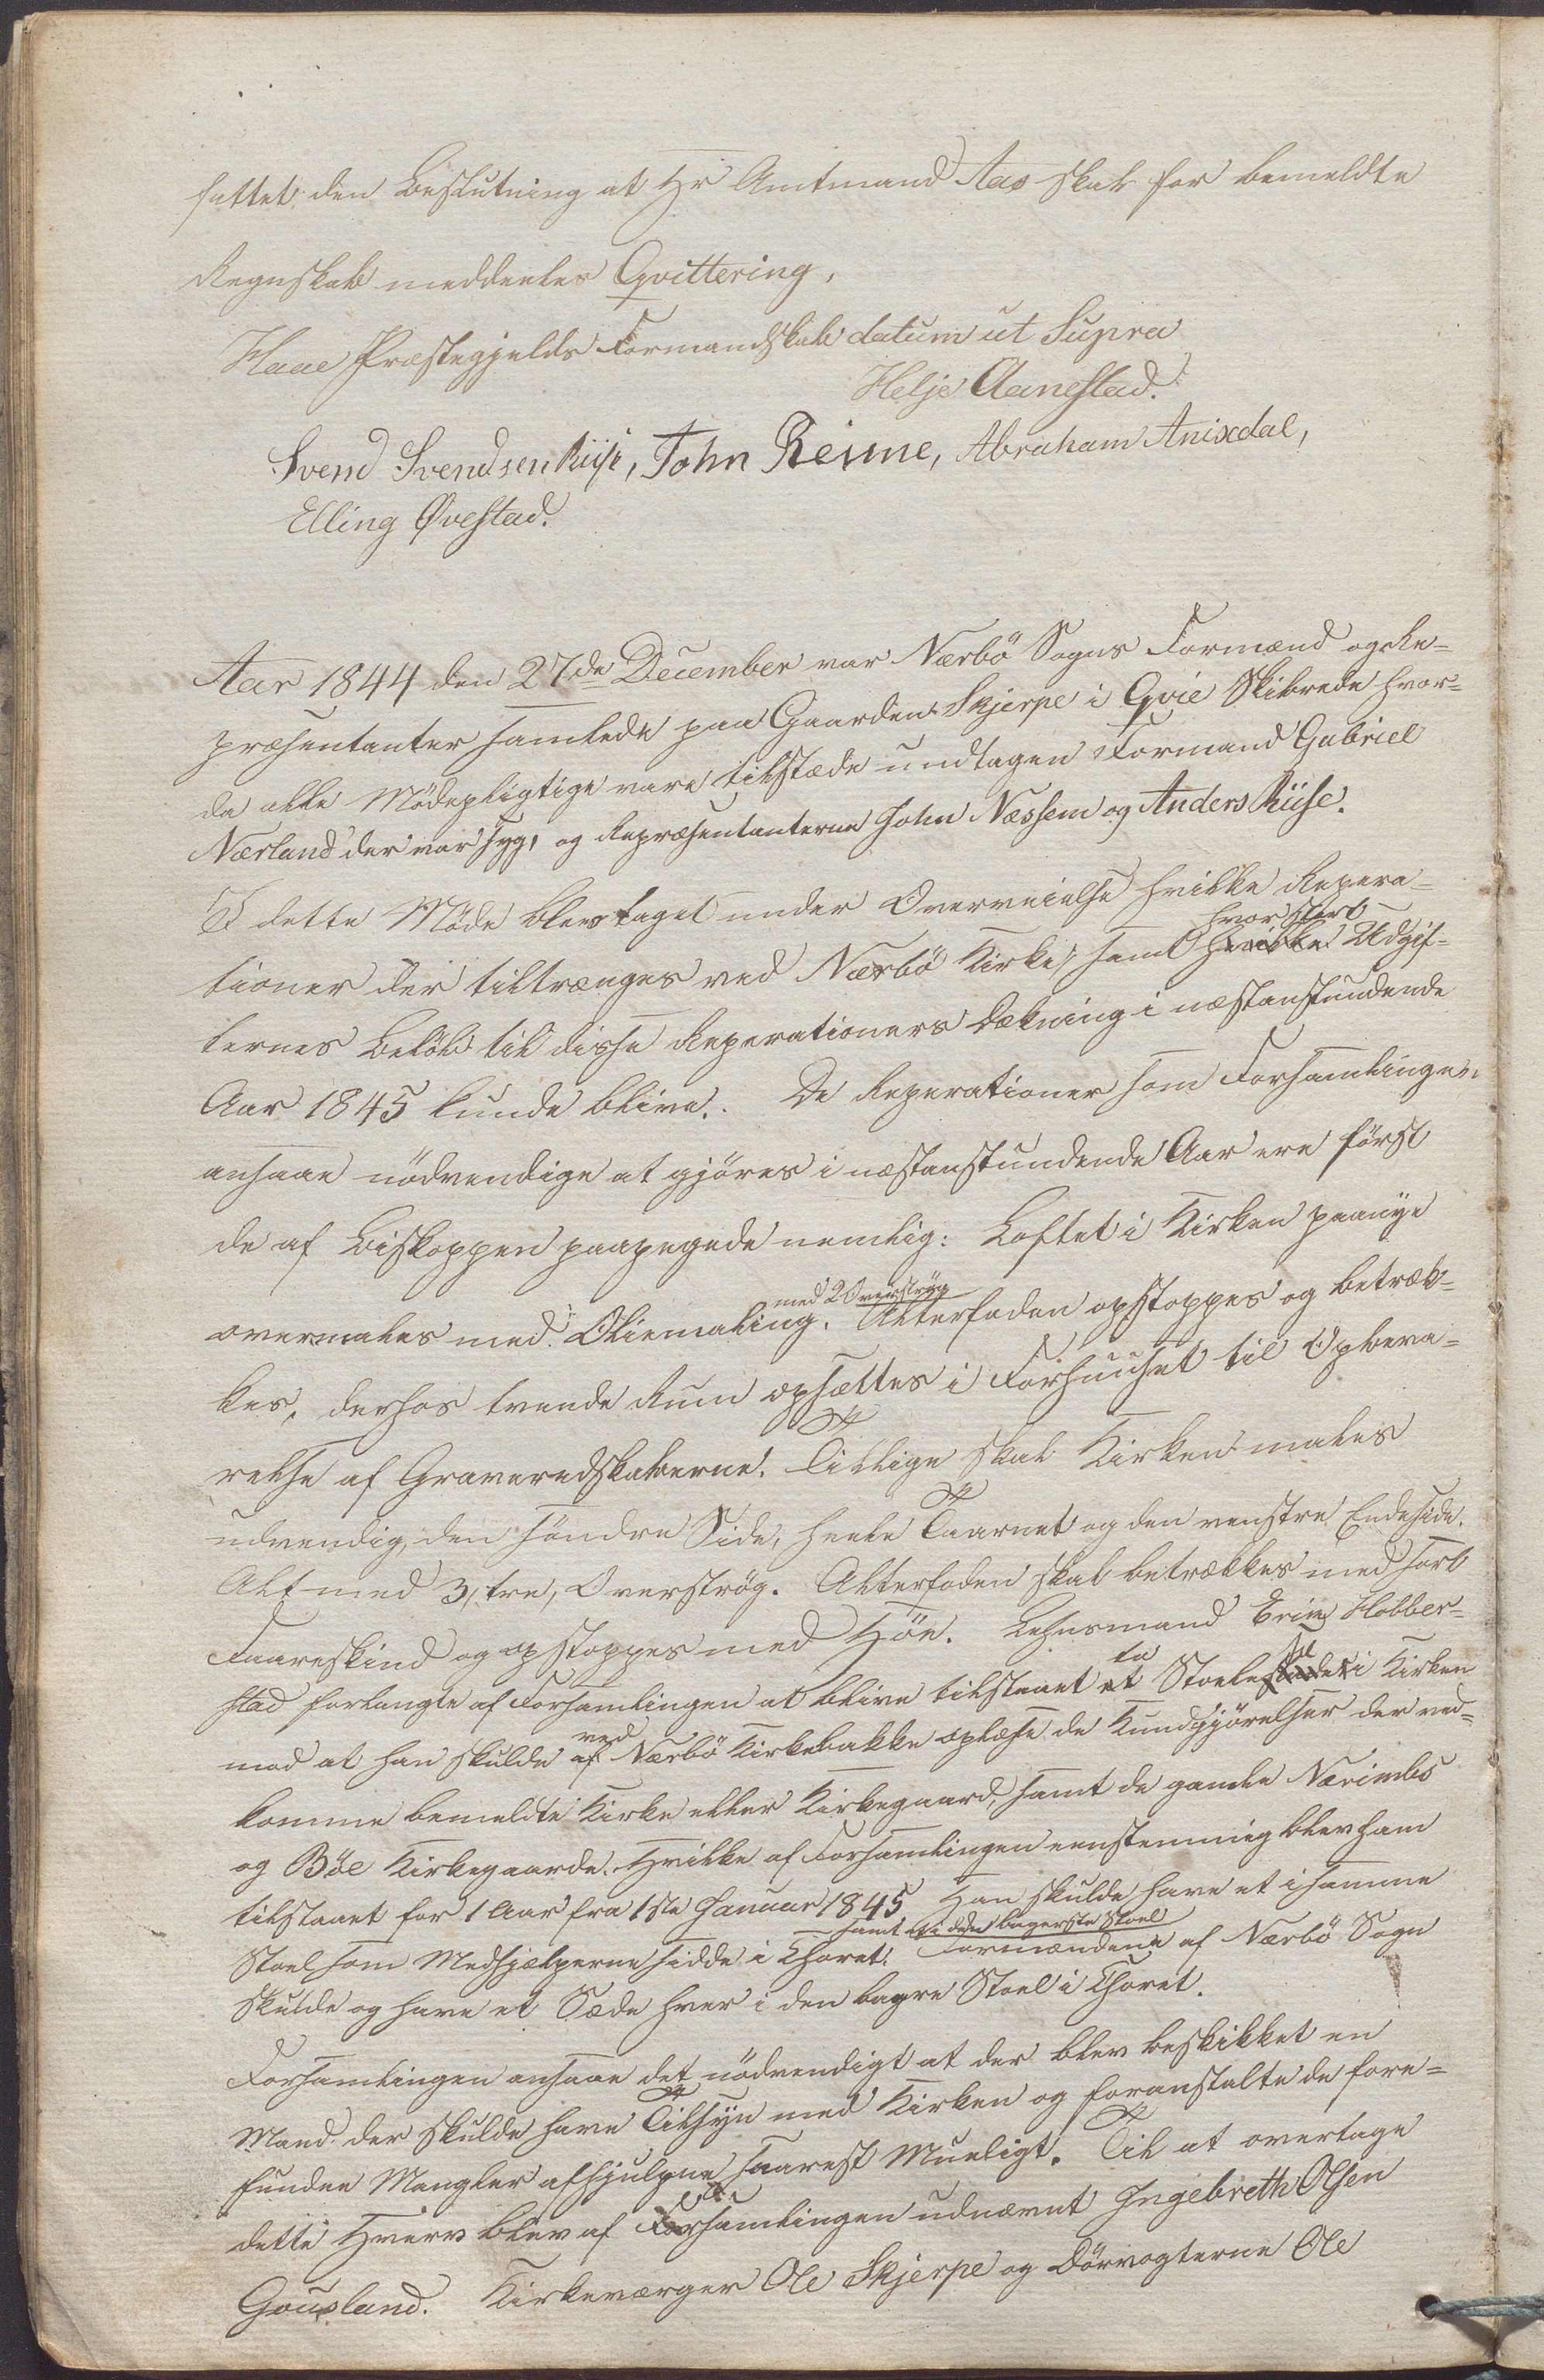 fattet den Beslutning at Hr Amtmand Aas skal for bemeldte
Regnskab meddeeles Qvittering,
Haae Præstegjelds Formandskab datum ut Supra
Helje Aanestad.
Svend Svendsen Riise, John Reime, Abraham Anixdal,
Elling Øvestad.
Aar 1844 den 27de December var Nærbö Sogns Formænd og Re-
præsentanter samlede paa Gaarden Skjerpe i Qvie Skibrede hvor-
da alle Mödepligtige vare tilstæde undtagen Formand Gabriel
Nærland der var syg, og Repræsentanterne John Næssem og Anders Riise.
I dette Möde blev taget under Overveielse hvilke Repera-
tioner der tiltrænges ved Nærbö Kirke, samt hvor stort Udgif-
ternes Belöb til disse Reperationers Dækning i næstanstundende
Aar 1845 kunde blive. De Reperationer som Forsamlingen
ansaae nödvendige at gjöres i næstanstundende Aar ere först
de af Biskoppen paapegede nemlig: Loftet i Kirken paanye
overmales med Oliemaling, med 2 Overströg Alterfoden opstoppes og betræk-
kes, derhos tvende Rum opsættes i Forhuuset til Opbeva-
relse af Graveredskaberne. Tillige skal Kirken males
udvendig, den söndre Side, heele Taarnet og den venstre Endeside.
Alt med 3, tre, Overströg. Alterfoden skal betrækkes med sort
Faareskind og opstoppes med Höe. Lehnsmand Erik Hobber-
stad forlangte af Forsamlingen at blive tilstaaet to Stoele i Kirken
mod at han skulde ved Nærbö Kirkebakke oplæse de Kundgjörelser der ved-
komme bemeldte Kirke eller Kirkegaard, samt de gamle Nærimbs
og Böe Kirkegaarde. Hvilke af Forsamlingen eenstemmig blev ham
tilstaaet for 1 Aar fra 1ste Januar 1845 Han skulde have et i samme
Stoel som Medhjælperne sidde i Choret. samt et i den bagerste Stoel Formændene af Nærbö Sogn
skulde og have et Sæde hver i den bagre Stoel i Choret.
Forsamlingen ansaae det nödvendigt at der blev beskikket en
Mand der skulde have Tilsyn med Kirken og foranstalte de fore-
fundne Mangler afhjulpne snarest Mueligt. Til at overtage
dette Hverv blev af Forsamlingen udnævnt Ingebreth Olsen
Gousland. Kirkeværger Ole Skjerpe og Dörvogterne Ole